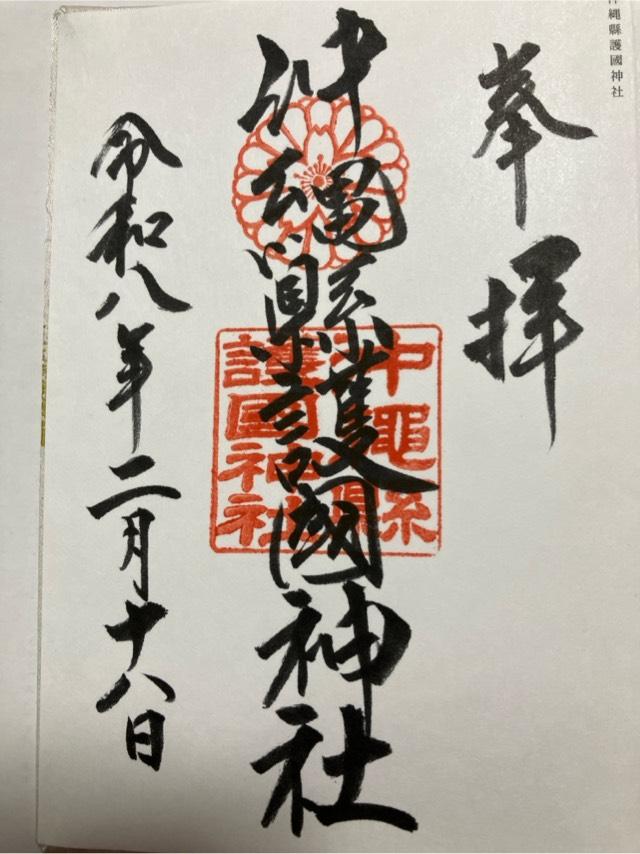 沖縄縣護國神社
奉拝
沖縄縣護國神社
沖縄縣
護国神社
令和八年二月十八日